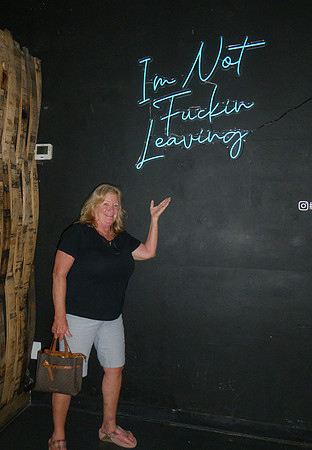 Im Not
Fuckin
Leaving